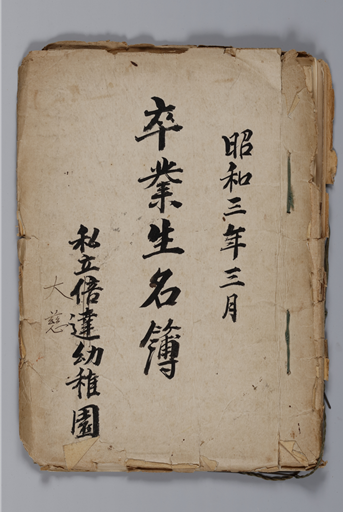 昭和三年三月
卒業生名簿
私立倍達幼稚園
大慈